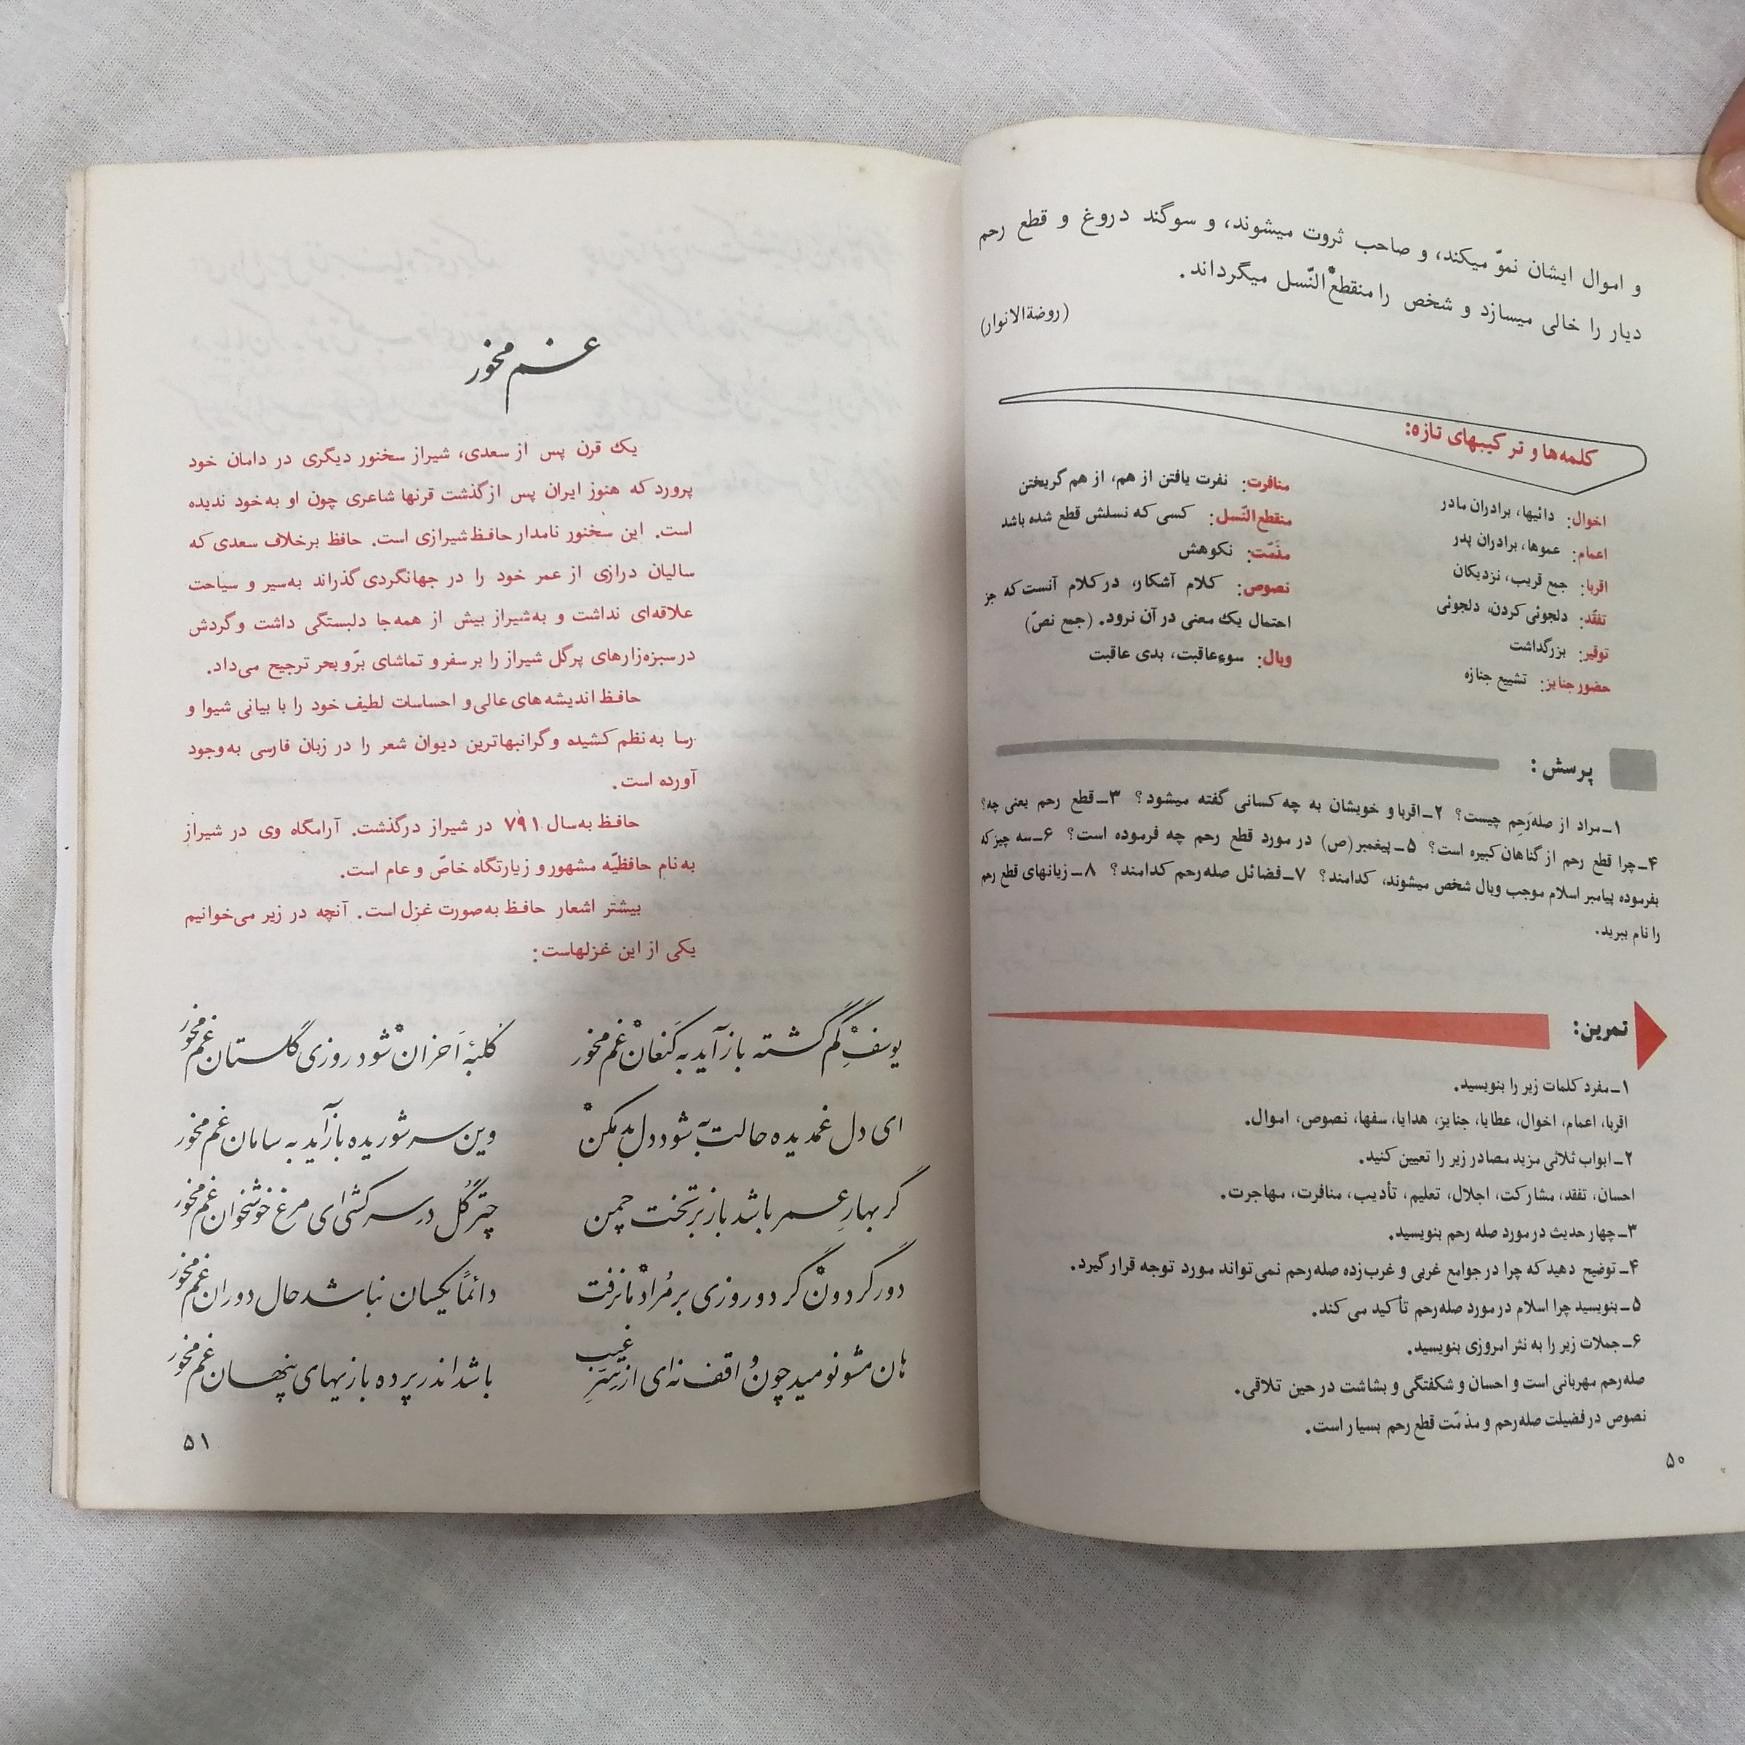 و اموال ایشان نموّ میکند، و صاحب ثروت میشوند، و سوگند دروغ و قطع رحم
دیار را خالی میسازد و شخص را منقطع‌ْالنّسل میگرداند.
(روضةالانوار)
کلمه‌ها و ترکیبهای تازه:
اخوال: دائیها، برادران مادر
اعمام: عموها، برادران پدر
اقربا: جمع قریب، نزدیکان
تفقّد: دلجوئی کردن، دلجوئی
توقیر: بزرگداشت
حضور جنایز: تشییع جنازه
منافرت: نفرت یافتن از هم، از هم گریختن
منقطع‌النّسل: کسی که نسلش قطع شده باشد
مذمّت: نکوهش
نصوص: کلام آشکار، در کلام آنست که جز
احتمال یک معنی در آن نرود. (جمع نصّ)
وبال: سوءعاقبت، بدی عاقبت
پرسش:
۱ـ مراد از صله‌رَحِم چیست؟ ۲ـ اقربا و خویشان به چه کسانی گفته میشود؟ ۳ـ قطع رحم یعنی چه؟
۴ـ چرا قطع رحم از گناهان کبیره است؟ ۵ـ پیغمبر (ص) در مورد قطع رحم چه فرموده است؟ ۶ـ سه چیز که
بفرموده پیامبر اسلام موجب وبال شخص میشوند، کدامند؟ ۷ـ فضائل صله‌رحم کدامند؟ ۸ـ زیانهای قطع رحم
را نام ببرید.
تمرین:
۱ـ مفرد کلمات زیر را بنویسید.
اقربا، اعمام، اخوال، عطایا، جنایز، هدایا، سفها، نصوص، اموال.
۲ـ ابواب ثلاثی مزید مصادر زیر را تعیین کنید.
احسان، تفقد، مشارکت، اجلال، تعلیم، تأدیب، منافرت، مهاجرت.
۳ـ چهار حدیث در مورد صله رحم بنویسید.
۴ـ توضیح دهید که چرا در جوامع غربی و غرب‌زده صله‌رحم نمی‌تواند مورد توجه قرار گیرد.
۵ـ بنویسید چرا اسلام در مورد صله‌رحم تأکید می‌کند.
۶ـ جملات زیر را به نثر امروزی بنویسید.
صله‌رحم مهربانی است و احسان و شکفتگی و بشاشت در حین تلاقی.
نصوص در فضیلت صله‌رحم و مذمّت قطع رحم بسیار است.
۵۰
غم مخور
یک قرن پس از سعدی، شیراز سخنور دیگری در دامان خود
پرورد که هنوز ایران پس از گذشت قرنها شاعری چون او به‌خود ندیده
است. این سخنور نامدار حافظ شیرازی است. حافظ برخلاف سعدی که
سالیان درازی از عمر خود را در جهانگردی گذراند به‌سیر و سیاحت
علاقه‌ای نداشت و به‌شیراز بیش از همه‌جا دلبستگی داشت و گردش
در سبزه‌زارهای پرگل شیراز را بر سفر و تماشای برّ و بحر ترجیح می‌داد.
حافظ اندیشه‌های عالی و احساسات لطیف خود را با بیانی شیوا و
رسا به نظم کشیده و گرانبهاترین دیوان شعر را در زبان فارسی به‌وجود
آورده است.
حافظ به‌سال ۷۹۱ در شیراز درگذشت. آرامگاه وی در شیراز
به‌نام حافظیّه مشهور و زیارتگاه خاصّ و عام است.
بیشتر اشعار حافظ به‌صورت غزل است. آنچه در زیر می‌خوانیم
یکی از این غزلهاست:
یوسفِ گم گشته باز آید به کَنعان غم مخور کُلبهٔ اَحزان شود روزی گلستان غم مخور
ای دل غمدیده حالت بَه شود دل بد مکن وین سر شوریده باز آید به سامان غم مخور
گر بهارِ عمر باشد باز بر تخت چمن چترِ گُل در سر کشی ای مرغ خوشخوان غم مخور
دور گردون گر دو روزی بر مُراد ما نرفت دائماً یکسان نباشد حال دوران غم مخور
هان مشو نومید چون واقف نه‌ای از سِرِّ غیب باشد اندر پرده بازیهای پنهان غم مخور
۵۱